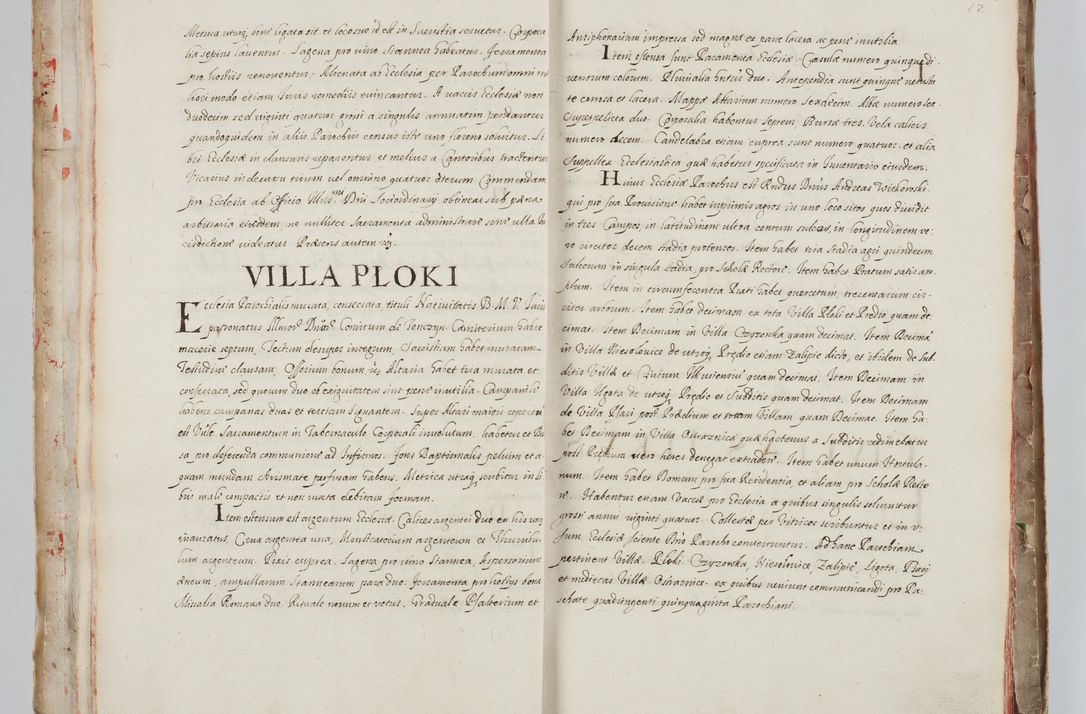 Metrica utraq, bene ligata sit et locosuo id est in Sacristia servetur. Corpora
lia sepius laventur. Lagena pro vino Stannea habeatur. Ferramenta
pro hostiis renoventur. Alienata ab Ecclesia per Parochum omni me
liori modo etiam Iuris remediis evincantur. A vaccis Ecclesiæ non
duodecim sed viginti quatuor grossi a singulis annuatim pendantur
quandoquidem in aliis Parochiis census iste uno floreno solvitur. Li
bri Ecclesiæ in clausuris reparentur et melius a Cantoribus tractentur
Vicarius in decursu trium vel omnino quatuor dierum Commendam
pro Ecclesia ab Officio Illmi Dni Loci ordinarii obtineat sub pæna
arbitraria eiusdem, ne nulliter Sacramenta administrare sine ulla Iu
risdictione videatur. Præsens autem
VILLA PŁOKI
Ecclesia Parochialis murata, consecrata, tituli Nativitatis B. M. V. Iuris
patronatus Illmor. Dnor. Comitum de Tenczyn. Cæmiterium habet
macerie septum, Tectum desuper integrum, Sacristiam habet muratam
Testudine clausam, Ossorium bonum. Altaria habet tria murata et
consecrata, sed quorum duo ob exiguitatem sint pene inutilia. Campanile
habens campanas duas et tertiam Signantem. Super Altari maiori repertum
est Vnle Sacramentum in Tabernaculo Corporali involutum, habetur et Bur
sa pro deferenda communione ad Infirmos. Fons Baptismalis pelvim et a
quam mundam chrismate perfusam habens. Metrica utraq, scribitur in li
bris male compactis et non iuxta debitam formam.
Item ostensum est argentum Ecclesiæ. Calices argentei duo ex his unus
inauratus. Crux argentea una, Ministratorium argenteum et Thuribu
lum argenteum. Pixis cuprea. Lagena pro vino Stannea, Aspersorium
æneum, ampullarum Stannearum paria duo. Ferramenta pro hostiis bona
Missalia Romana duo. Rituale novum et vetus. Graduale Psalterium et
12
Antiphonarium impressa sed magna ex parte lacera ac pene inutilia
Item ostensa sunt Paramenta Ecclesiæ. Casulæ numero quinque di
versorum colorum. Pluvialia antiis duo. Antependia sunt quinque vetusta
te corrosa et lacera. Mappæ Altarium numero Sexdecim. Albæ numero sex.
Superpelicea duo. Corporalia habentur septem. Bursæ tres. Vela calicis
numero decem. Candelabra etiam cuprea sunt numero quatuor. et alia
Suppellex Ecclesiastica quæ habetur specificata in Inventario eiusdem.
Huius Ecclesiæ Parochus est Rndus Dnus Andreas Wichorski
qui pro sua Provisione habet inprimis agros in uno loco sitos quos dividit
in tres Campos, in latitudinem ultra centum sulcos, in longitudinem ve
ro circiter decem stadia protensos. Item habet tria stadia agri quindecim
sulcorum in singula stadia, pro Scholæ Rectore. Item habet Pratum satis am
plum. Item in circumferentia Prati habet quercetum, trecentarum cir
citer arborum. Item habet decimam ex tota Villa Płoki et Prædio quam de
cimat. Item Decimam in Villa Czyzowka quam decimat. Item Decima
in Villa Niesołowice de utroq, Prædio etiam Zalipie dicto, et ibidem de Sub
ditis Villæ et Civium quam decimat. Item Decimam in
Villa Ligota de utroq, Prædio et Subditis quam decimat. Item Decimam
de Villa Psari post Prædium et totam Villam quam Decimat. Item ha
bet Decimam in Villa Ostraznica quæ hactenus a Subditis redimebatur
post Prædium vero heres denegat extradere. Item habet unum Hortula
num. Item habet Domum pro sua Residentia, et aliam pro Scholæ Recto
re. Habentur etiam Vaccæ pro Ecclesia a quibus singulis solvuntur
grossi annui viginti quatuor. Collectæ per Vitricos scribuntur et in v
sum Ecclesiæ sciente Dno Parocho convertuntur. Ad hanc Parochiam
pertinent Villæ. Płoki. Czyzowka, Niesołowice, Zalipie, Ligota, Psary
et medietas Villæ Ostraznice. ex quibus veniunt communicandi pro Pa
schate quadringenti quinquaginta Parochiani.